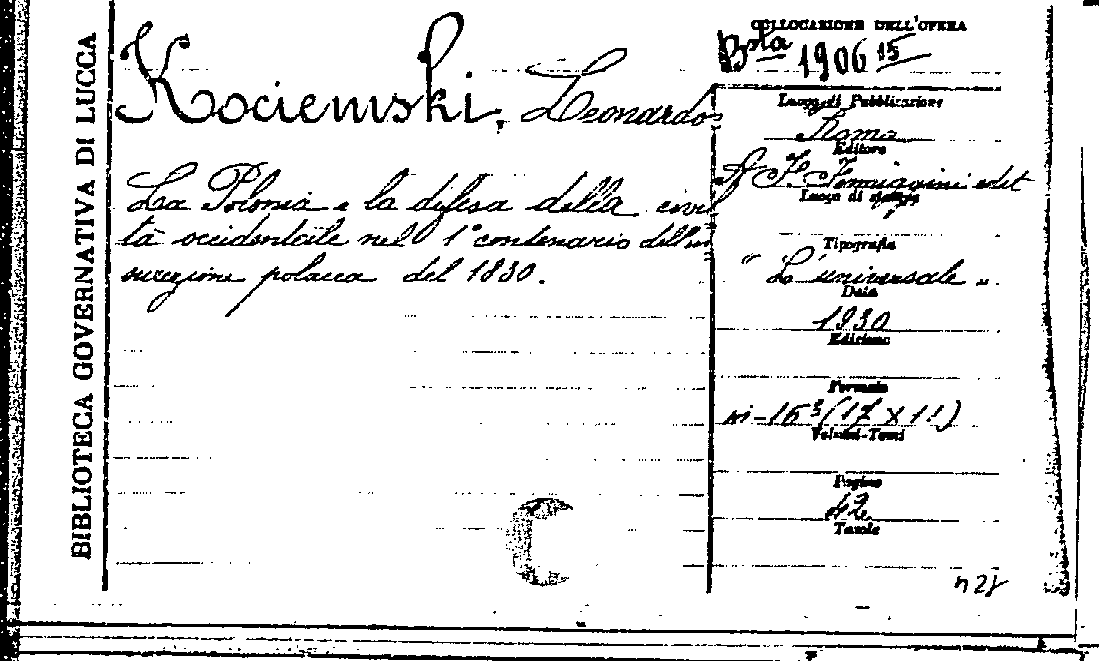 BIBLIOTECA GOVERNATIVA DI LUCCA
Kociemski, Leonardo
La Polonia e la difesa della civil
tà occidentale nel 1° centenario dell'in
surezione polacca del 1830.
COLLOCAZIONE DELL'OPERA
Bsta 1906 15
Luogo di Pubblicazione
Roma
Editore
A. F. Formiggini edit
Luogo di stampa
Tipografia
"L'universale"
Data
1930
Edizione
Formato
in-16° (17 x 11)
Volumi-Tomi
Pagine
42
Tavole